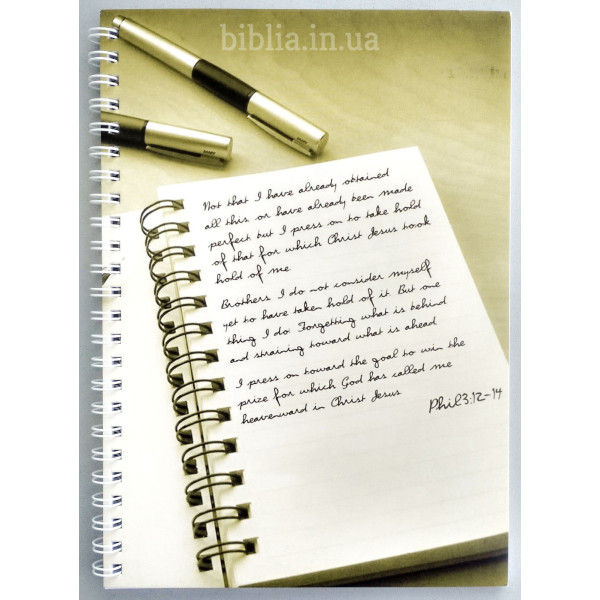 biblia.in.ua
Not that I have already obtained
all this, or have already been made
perfect but I press on to take hold
of that for which Christ Jesus took
hold of me
Brothers I do not consider myself
yet to have taken hold of it. But one
thing I do: Forgetting what is behind
and straining toward what is ahead
I press on toward the goal to win the
prize for which God has called me
heavenward in Christ Jesus
Phil3:12-14